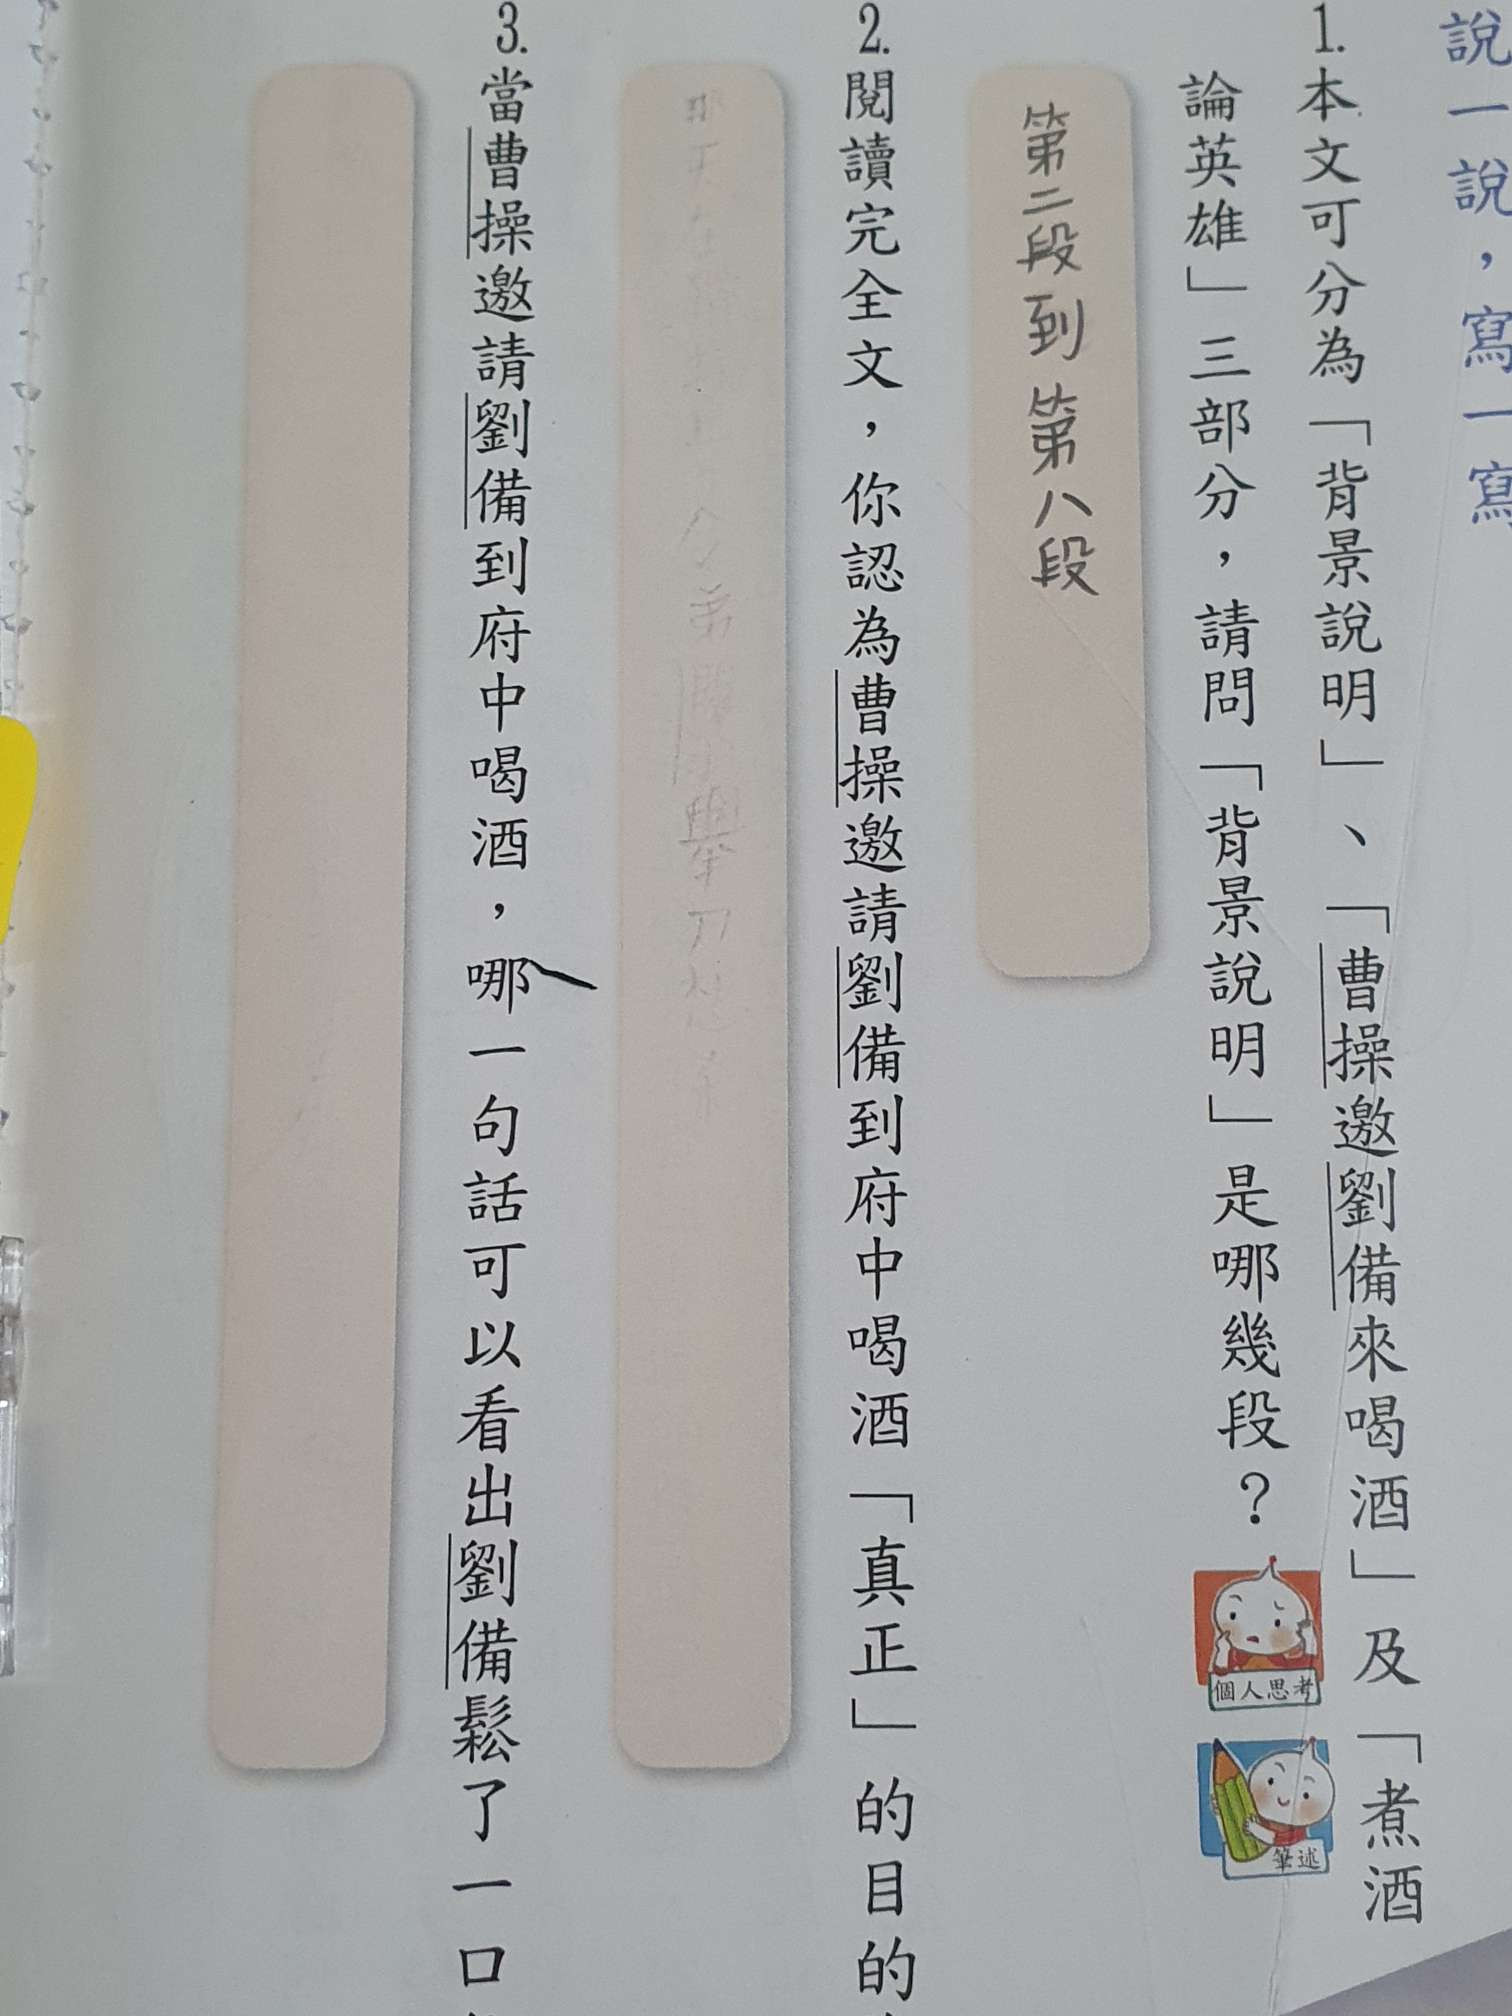 說一說，寫一寫
1.本文可分為「背景說明」、「曹操邀劉備來喝酒」及「煮酒
論英雄」三部分，請問「背景說明」是哪幾段？
個人思考
筆述
第二段到第八段
2.閱讀完全文，你認為曹操邀請劉備到府中喝酒「真正」的目的
3.當曹操邀請劉備到府中喝酒，哪一句話可以看出劉備鬆了一口